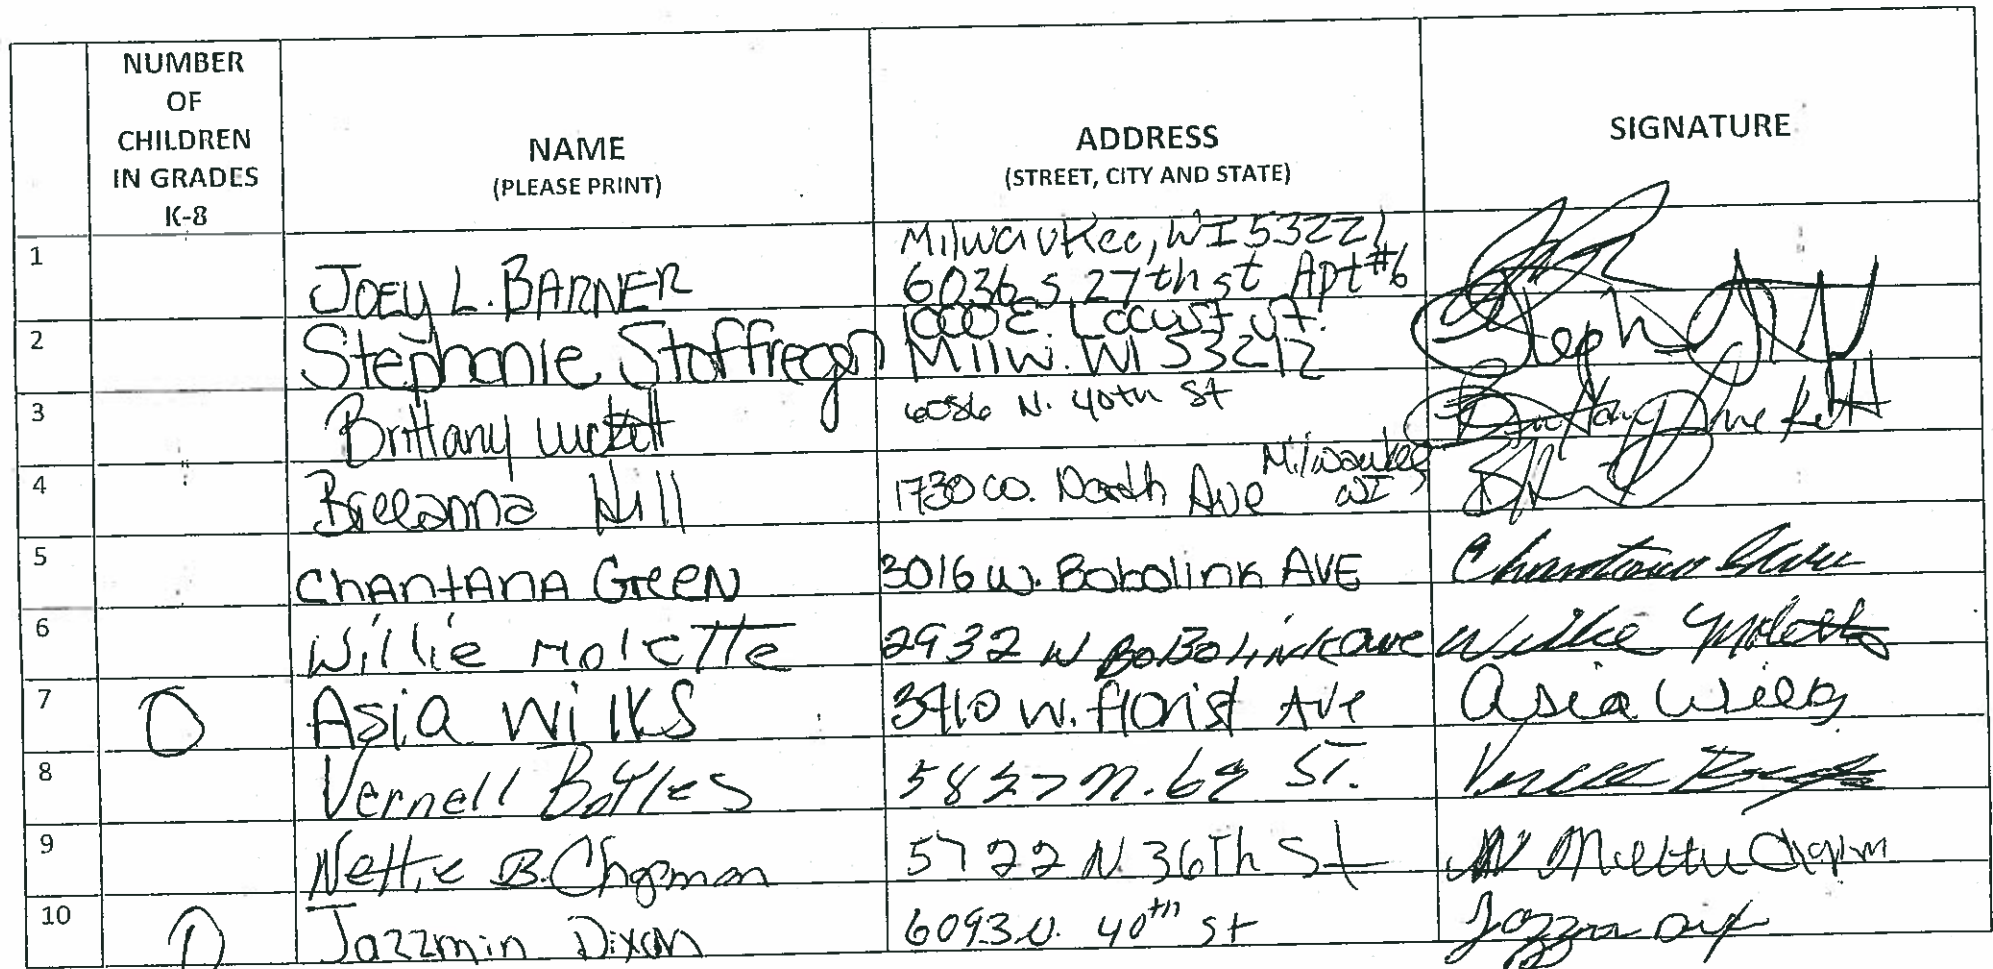 NUMBER
OF
CHILDREN
IN GRADES
K-8
NAME
(PLEASE PRINT)
ADDRESS
(STREET, CITY AND STATE)
SIGNATURE
1 JOEY L. BARNER Milwaukee, WI 53221
6036 S. 27th st Apt #6
2 Stephanie Stoffregen 1000 E. Locust St.
Milw. WI 53212
3 Brittany Luckett 6056 N. 40th St Brittany Luckett
4 Breeanna Hill 1730 W. North Ave Milwaukee
WI
5 ChANtANA GreeN 3016 W. Bobolink AVE Chantana Green
6 Willie Molette 2932 W BoBolink ave Willie Molette
7 0 Asia Wilks 3410 W. florist Ave Asia Wilks
8 Vernell 5827 N. 69 ST. Vernell
9 Nettie B. Chapman 5722 N. 36Th St Nettie Chapm
10 0 Jazzmin Dixon 6093 N. 40th st Jazzmin Dix